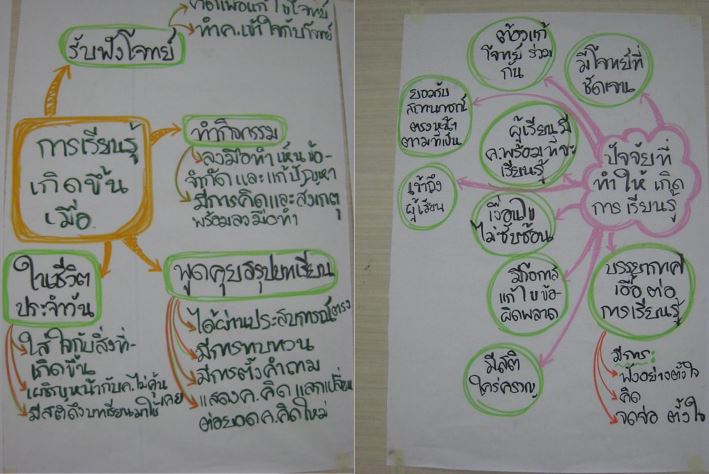 คิดเพื่อแก้ไขโจทย์
ทำค.เข้าใจกับโจทย์
รับฟังโจทย์
การเรียนรู้
เกิดขึ้น
เมื่อ
ทำกิจกรรม
ลงมือทำ เห็นข้อ-
จำกัด และแก้ปัญหา
มีการคิดและสังเกตุ
พร้อมลงมือทำ
ในชีวิต
ประจำวัน
ใส่ใจกับสิ่งที่-
เกิดขึ้น
เผชิญหน้ากับค.ไม่คุ้นเคย
มีสติถึงบทเรียนมาใช้
พูดคุยสรุปบทเรียน
ได้ผ่านประสบการณ์ตรง
มีการทบทวน
มีการตั้งคำถาม
แสดงค.คิด แลกเปลี่ยน
ต่อยอดค.คิดใหม่
ต้องแก้
โจทย์ ร่วม
กัน
มีโจทย์ที่
ชัดเจน
ยอมรับ
สถานการณ์
ตรงหน้า
ตามที่เป็น
ผู้เรียนมี
ค.พร้อมที่จะ
เรียนรู้
ปัจจัยที่
ทำให้ เกิด
การเรียนรู้
เข้าถึง
ผู้เรียน
เงื่อนไข
ไม่ซับซ้อน
มีโอกาส
แก้ไขข้อ-
ผิดพลาด
บรรยากาศ
เอื้อต่อ
การเรียนรู้
มีสติ
ใคร่ครวญ
มีการ:
ฟังอย่างตั้งใจ
คิด
จดจ่อ ตั้งใจ